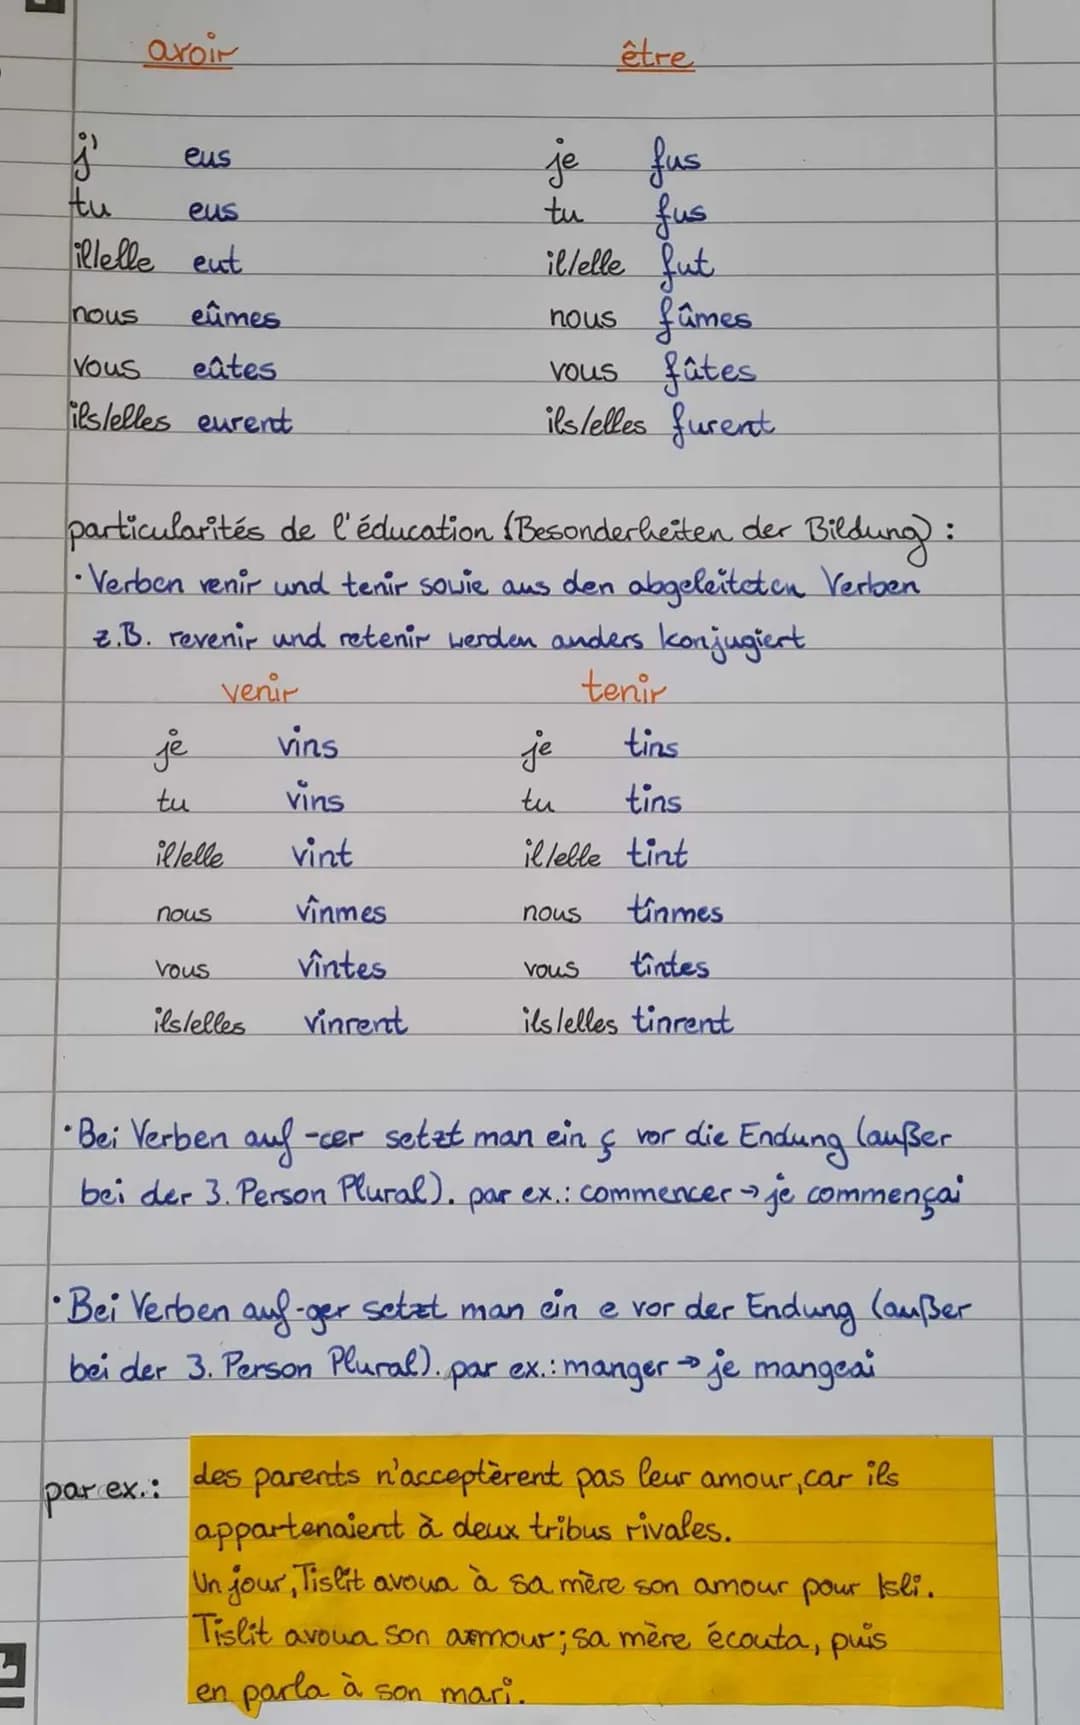 avoir être
j' eus je fus
tu eus tu fus
il/elle eut il/elle fut
nous eûmes nous fûmes
vous eûtes vous fûtes
ils/elles eurent ils/elles furent
particularités de l'éducation (Besonderheiten der Bildung):
• Verben venir und tenir sowie aus den abgeleiteten Verben
z.B. revenir und retenir werden anders konjugiert
venir tenir
je vins je tins
tu vins tu tins
il/elle vint il/elle tint
nous vînmes nous tînmes
vous vîntes vous tîntes
ils/elles vinrent ils/elles tinrent
• Bei Verben auf -cer setzt man ein ç vor die Endung (außer
bei der 3. Person Plural). par ex.: commencer → je commençai
• Bei Verben auf -ger setzt man ein e vor der Endung (außer
bei der 3. Person Plural). par ex.: manger → je mangeai
par ex.: des parents n'acceptèrent pas leur amour, car ils
appartenaient à deux tribus rivales.
Un jour, Tislit avoua à sa mère son amour pour Isli.
Tislit avoua son amour; sa mère écouta, puis
en parla à son mari.